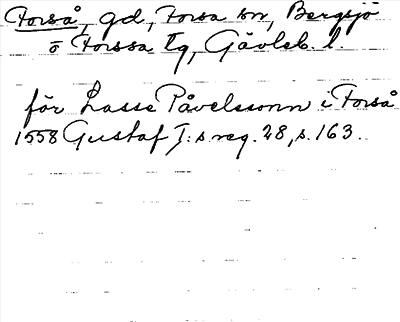 Forså, gd, Forsa sn, Bergsjö
o Forssa tg, Gävleb. l.
för Lasse Påvelssonn i Forså
1558 Gustaf I:s reg. 28, s. 163.